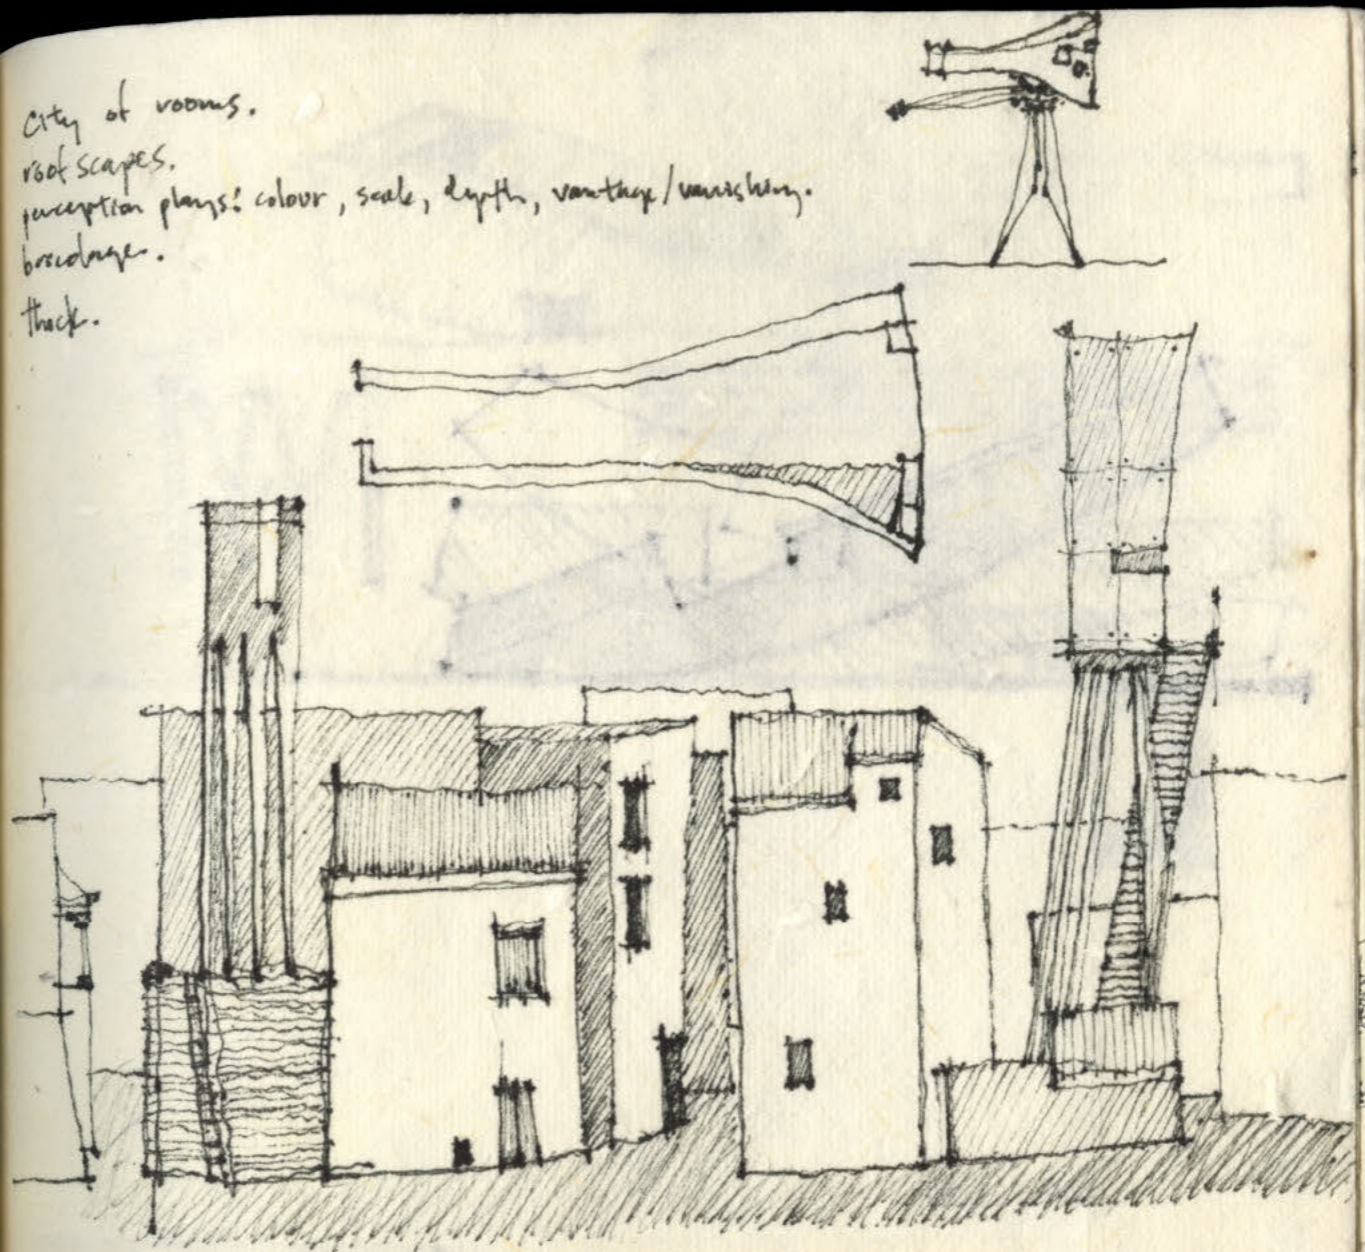 City of rooms.
roofscapes.
perception plays: colour, scale, depth, vantage/vanishing.
bricolage.
thick.